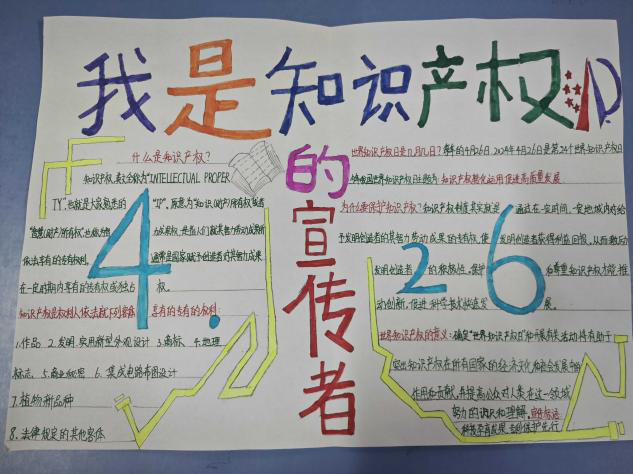 我是知识产权
的宣传者
4.26
什么是知识产权?
知识产权,英文全称为"INTELLECTUAL PROPER
TY",也就是大家熟悉的"IP",原意为"知识(财产)所有权"或者
"智慧(财产)所有权",也称为智力成果权,是指人们就其智力劳动成果所
依法享有的专有权利,通常是国家赋予创造者对其智力成果
在一定时期内享有的专有权或独占权。
知识产权是权利人依法就下列客体享有的专有的权利:
1.作品 2.发明、实用新型、外观设计 3.商标、4.地理
标志、5.商业秘密 6.集成电路布图设计
7.植物新品种
8.法律规定的其他客体
世界知识产权日是几月几日?每年的4月26日.2024年4月26日是第24个世界知识产权日
我国世界知识产权日主题为:知识产权转化运用促进高质量发展
为什么要保护知识产权?知识产权制度其实就是通过在一定时间、一定地域内对给
予发明创造者的其智力劳动成果的专有权,使发明创造者获得利益回报,从而激励
发明创造者的积极性。保护和尊重知识产权才能推
动创新,促进科学技术快速发展。
世界知识产权的意义:确定"世界知识产权日"和开展有关活动将有助于
突出知识产权在所有国家的经济文化和社会发展中的
作用和贡献,并提高公众对人类在这一领域
努力的认识和理解。宣传标语
科技孕育发展 专利保护先行